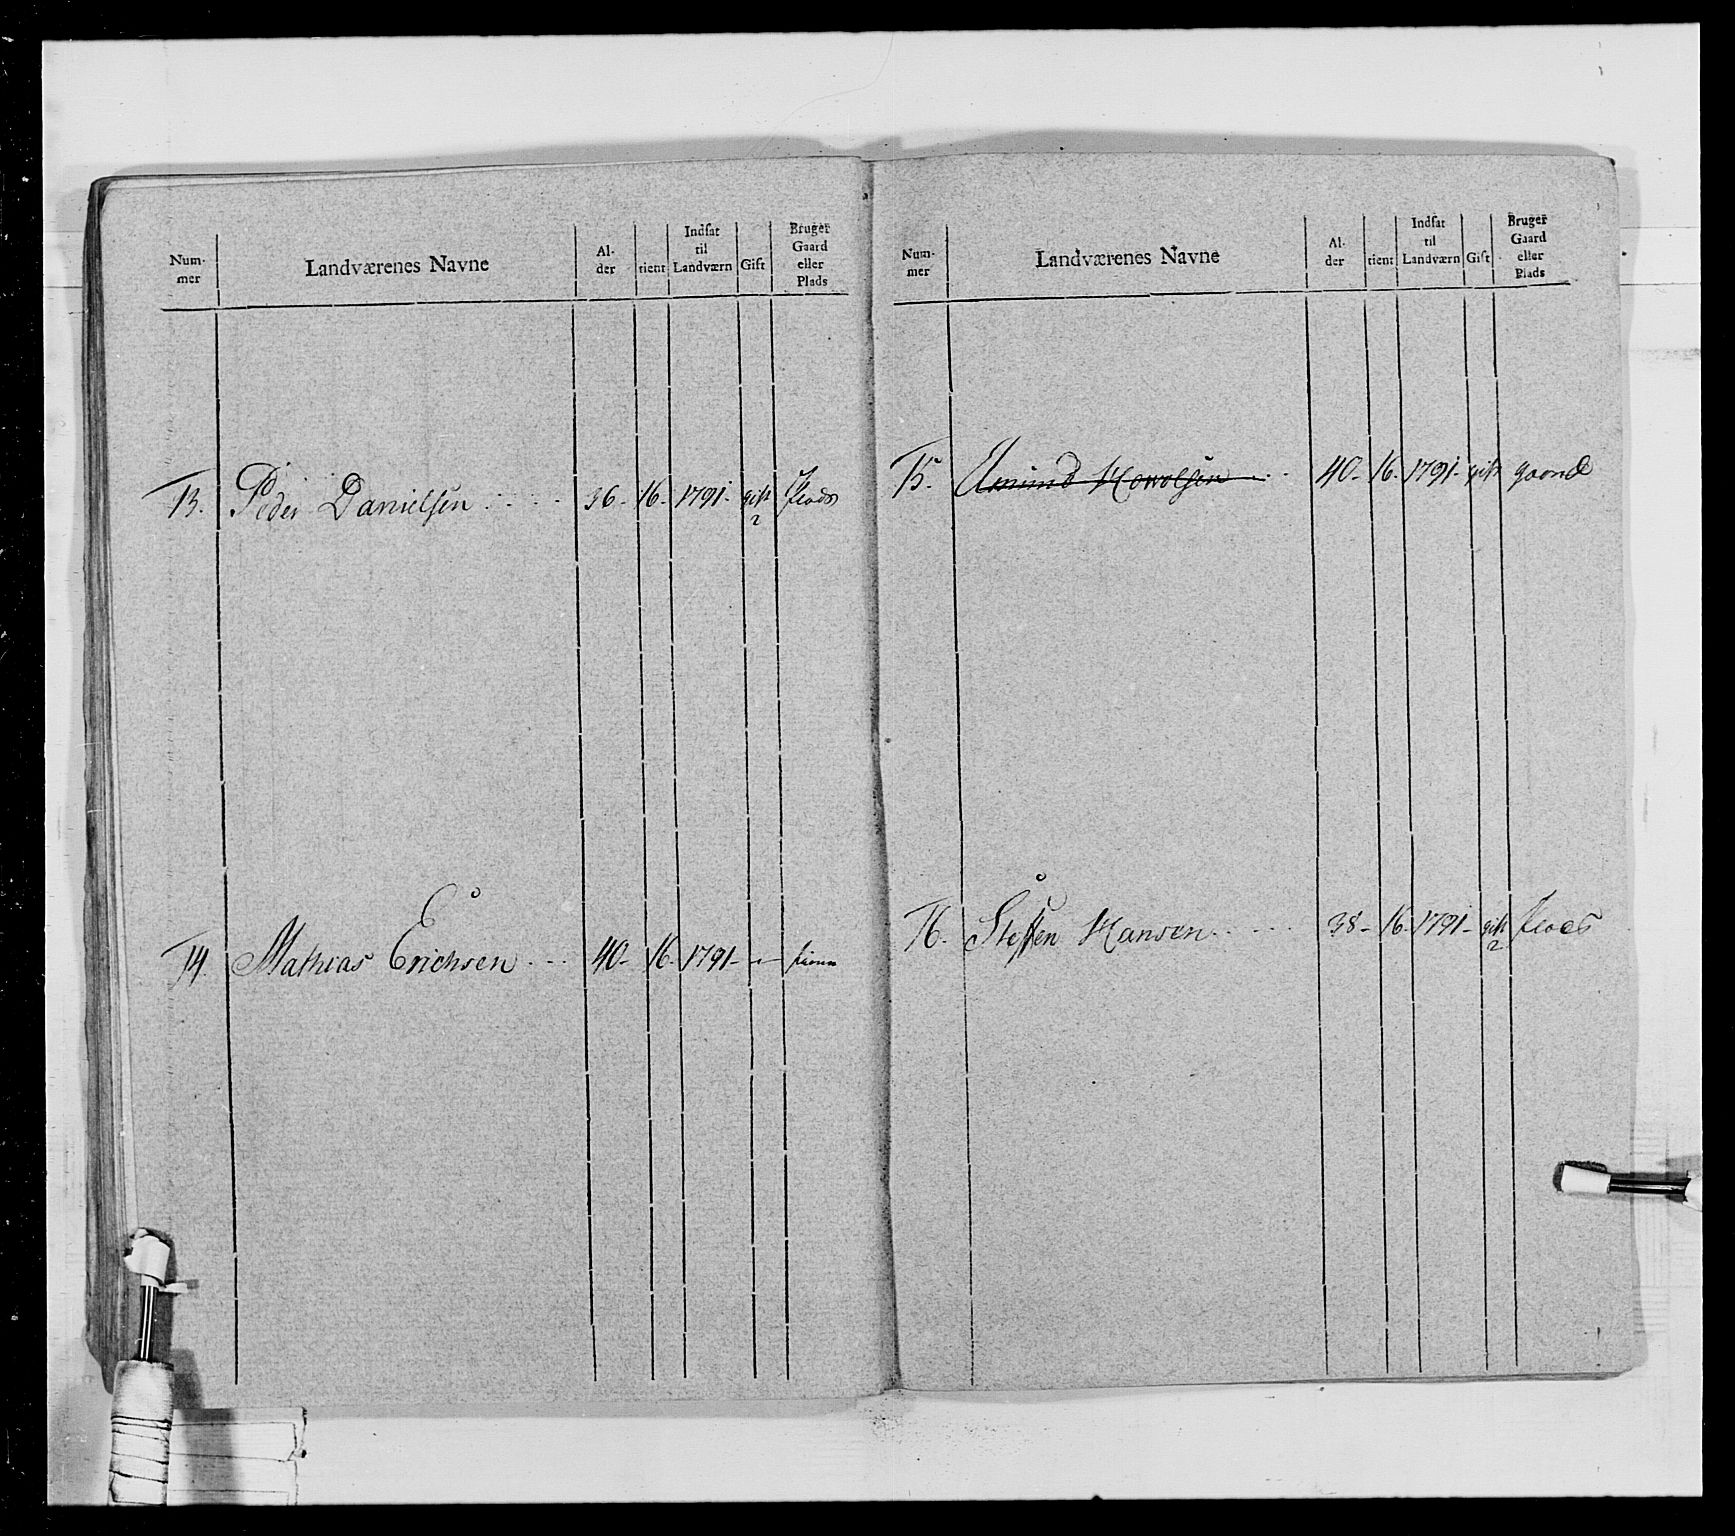 Num- mer Landværenes Navne Al- der tient Indsat til Landværn Gift Bruger Gaard eller Plads
73. Peder Danielsen 36- 16- 1791- gift 2 Plads
74. Mathias Erichsen 40- 16- 1791- —
Num- mer Landværenes Navne Al- der tient Indsat til Landværn Gift Bruger Gaard eller Plads
75. Amund 40- 16- 1791- gift gaard
76. Steffen Hansen 38- 16- 1791- gift 2 Plads